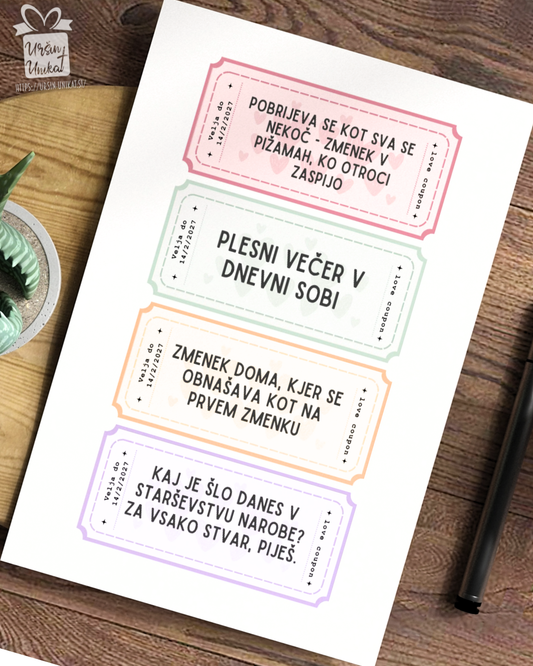 Uršin
Unikat
HTTPS://URSIN-UNIKAT.SI/
Velja do
14/2/2027
POBRIJEVA SE KOT SVA SE
NEKOČ - ZMENEK V
PIŽAMAH, KO OTROCI
ZASPIJO
love coupon
Velja do
14/2/2027
PLESNI VEČER V
DNEVNI SOBI
love coupon
Velja do
14/2/2027
ZMENEK DOMA, KJER SE
OBNAŠAVA KOT NA
PRVEM ZMENKU
love coupon
Velja do
14/2/2027
KAJ JE ŠLO DANES V
STARŠEVSTVU NAROBE?
ZA VSAKO STVAR, PIJEŠ.
love coupon